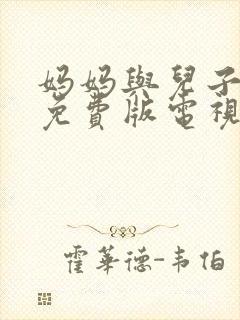 妈妈與兒子
免費版電視
霍華德-韦伯